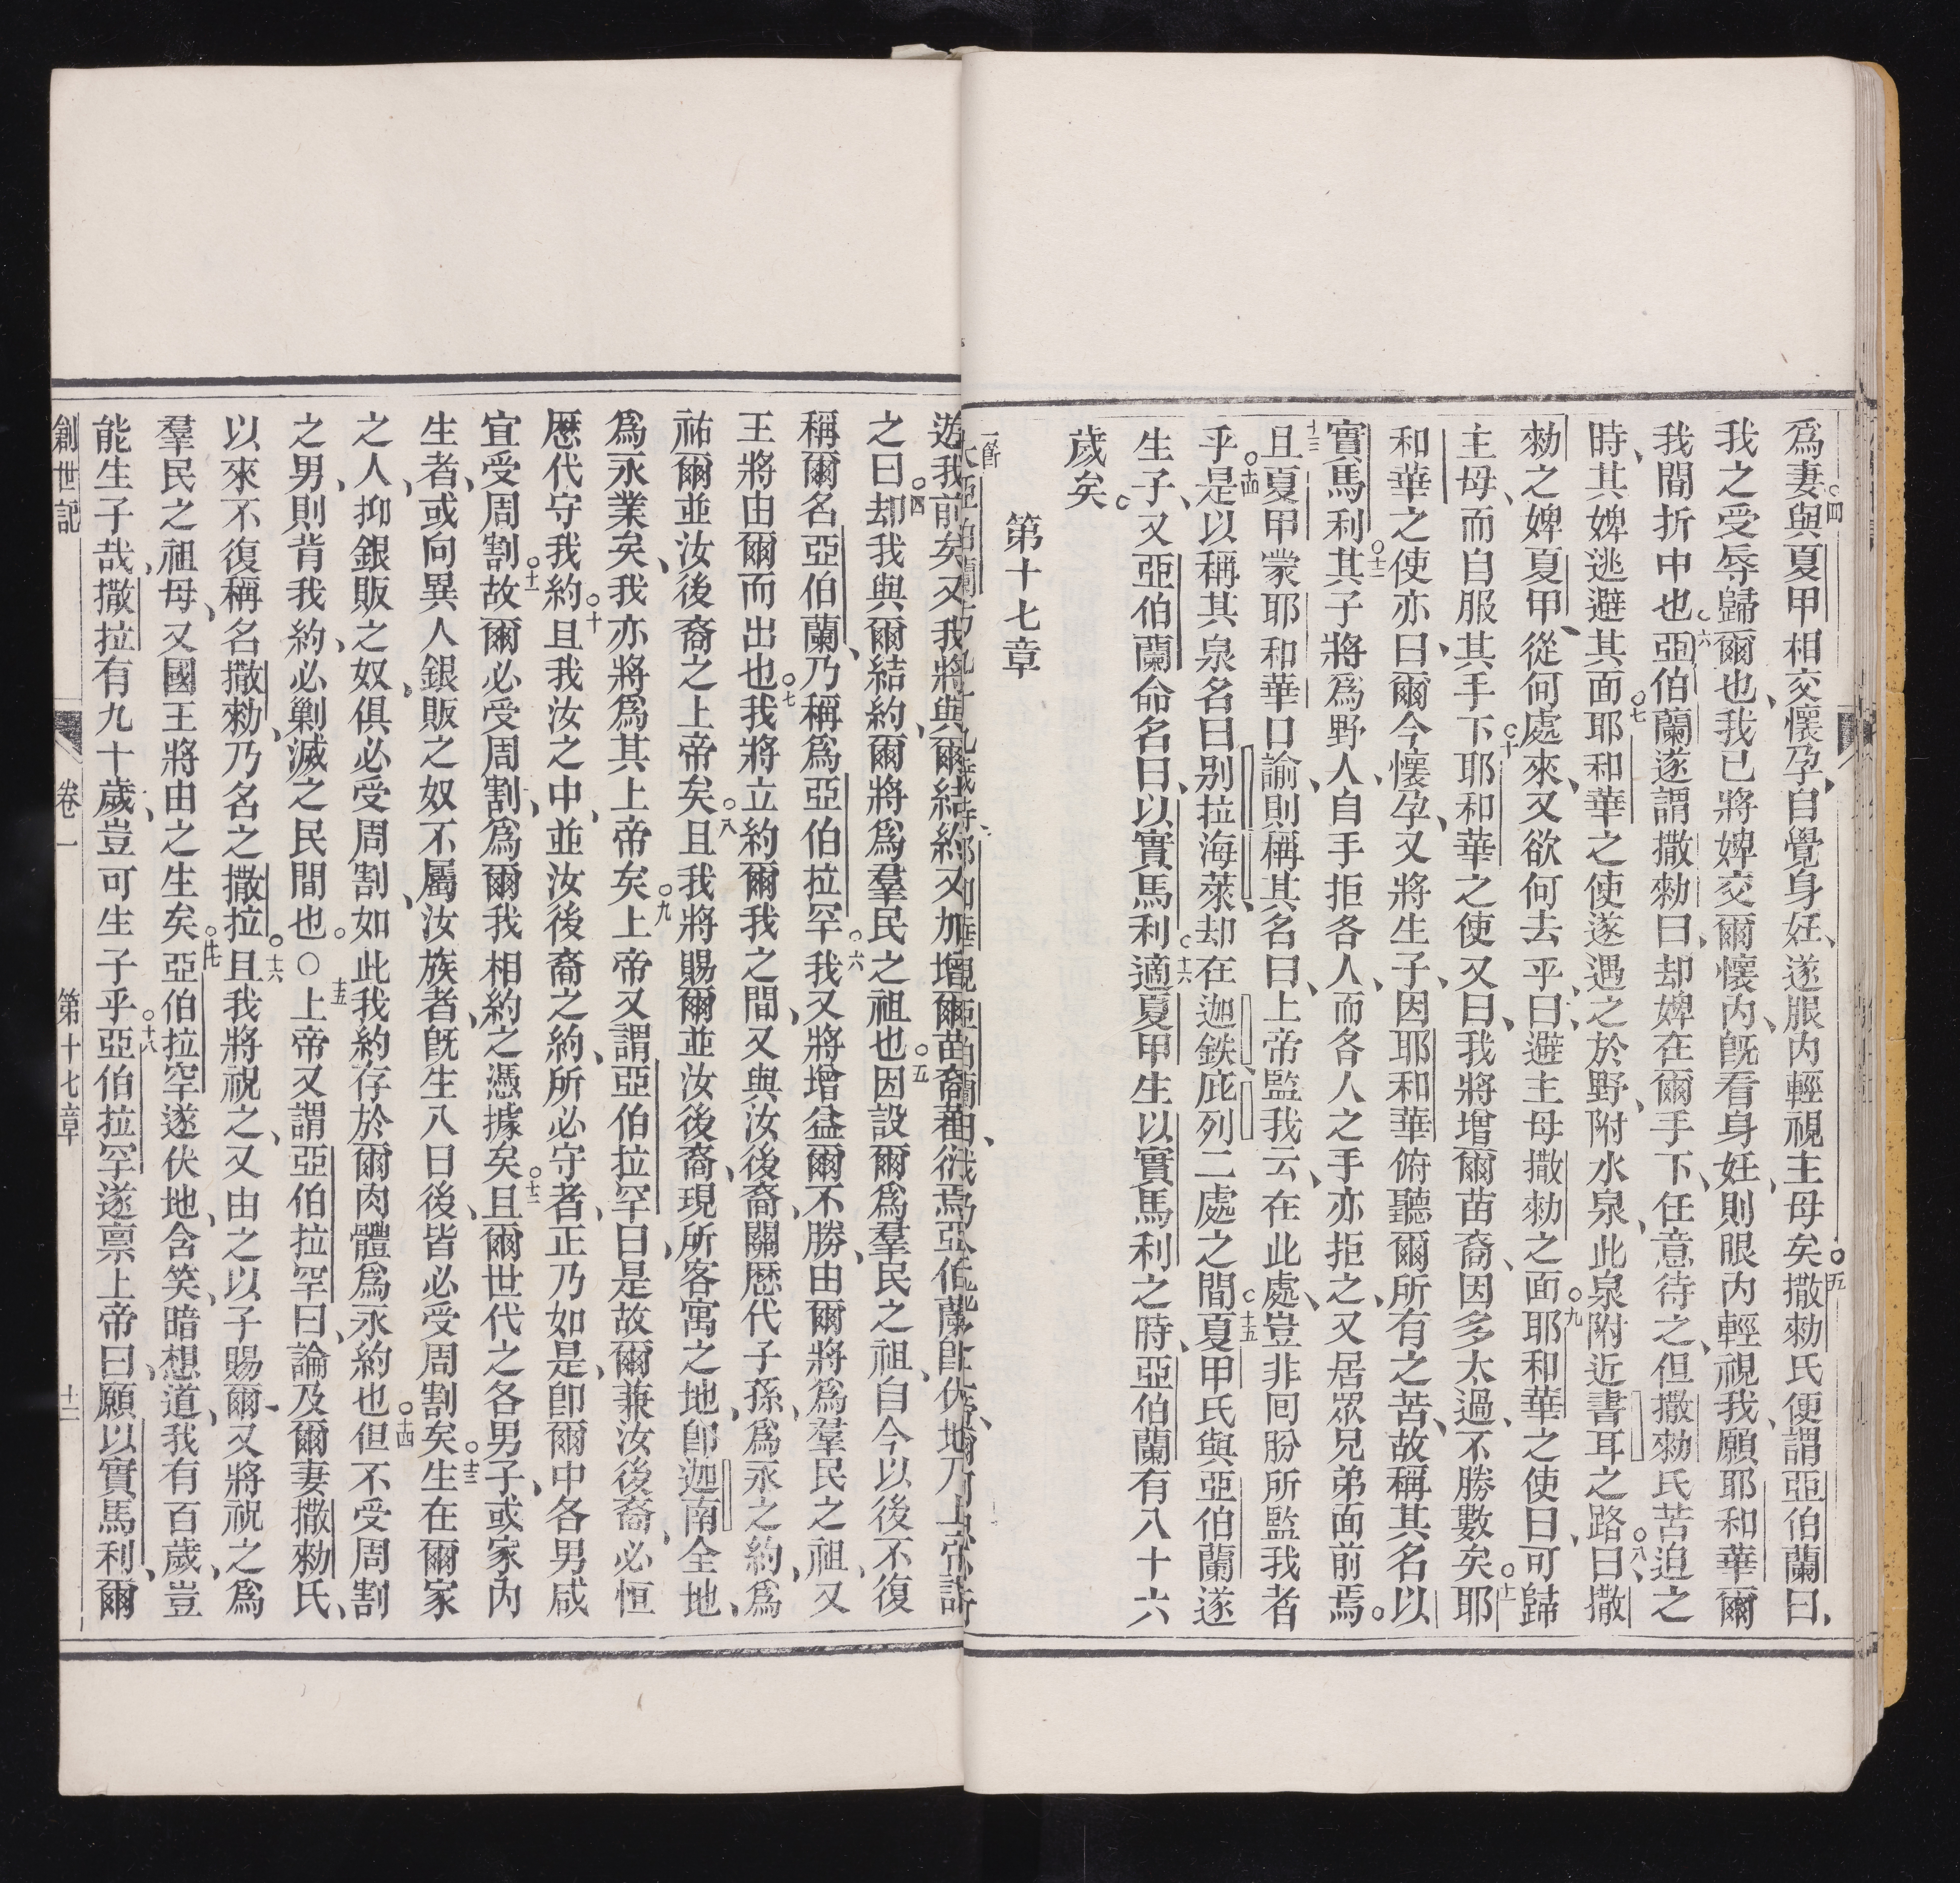 爲妻○四與夏甲相交懷孕、自覺身妊、遂眼內輕視主母矣○五撒勑氏便謂亞伯蘭曰、
我之受辱歸爾也、我已將婢交爾懷內、旣看身妊、則眼內輕視我、願耶和華爾
我間折中也○六亞伯蘭遂謂撒勑曰、却婢在爾手下、任意待之、但撒勑氏苦迫之
時、其婢逃避其面○七耶和華之使遂遇之於野、附水泉、此泉附近書耳之路○八曰、撒
勑之婢夏甲、從何處來、又欲何去乎、曰、避主母撒勑之面○九耶和華之使曰、可歸
主母、而自服其手下○十耶和華之使又曰、我將增爾苗裔、因多太過、不勝數矣○十一耶
和華之使亦曰、爾今懷孕、又將生子、因耶和華俯聽爾所有之苦、故稱其名以
實馬利○十二其子將爲野人、自手拒各人、而各人之手、亦拒之、又居眾兄弟面前焉。
十三且夏甲蒙耶和華口諭、則稱其名曰、上帝監我云、在此處、豈非囘朌所監我者
乎○十四是以稱其泉名曰別拉海萊、却在迦鉄庇列二處之間○十五夏甲氏與亞伯蘭遂
生子、又亞伯蘭命名曰、以實馬利○十六適夏甲生以實馬利之時、亞伯蘭有八十六
歲矣。
第十七章
一節
遊我前矣、又我將與爾結約、又加增爾苗裔蕃衍焉、亞伯蘭卽伏地、乃上帝語
之曰○四却我與爾結約、爾將爲羣民之祖也○五因設爾爲羣民之祖、自今以後不復
稱爾名亞伯蘭、乃稱爲亞伯拉罕○六我又將增益爾不勝、由爾將爲羣民之祖、又
王將由爾而出也○七我將立約爾我之間、又與汝後裔、關歷代子孫、爲永之約、爲
祐爾並汝後裔之上帝矣○八且我將賜爾並汝後裔、現所客寓之地、卽迦南全地、
爲永業矣、我亦將爲其上帝矣○九上帝又謂亞伯拉罕曰、是故爾兼汝後裔、必恒
歷代守我約○十且我汝之中、並汝後裔之約、所必守者、正乃如是、卽爾中各男咸
宜受周割○十一故爾必受周割、爲爾我相約之憑據矣○十二且爾世代之各男子、或家內
生者、或向異人銀販之奴不屬汝族者、旣生八日後、皆必受周割矣○十三生在爾家
之人、抑銀販之奴、俱必受周割、如此我約存於爾肉體爲永約也○十四但不受周割
之男、則背我約、必剿滅之民間也。○十五上帝又謂亞伯拉罕曰、論及爾妻撒勑氏、
以來不復稱名撒勑、乃名之撒拉○十六且我將祝之、又由之以子賜爾、又將祝之爲
羣民之祖母、又國王將由之生矣○十七亞伯拉罕遂伏地、含笑、暗想道、我有百歲、豈
能生子哉、撒拉有九十歲、豈可生子乎○十八亞伯拉罕遂禀上帝曰、願以實馬利、爾
創世記 卷一 第十七章 十二